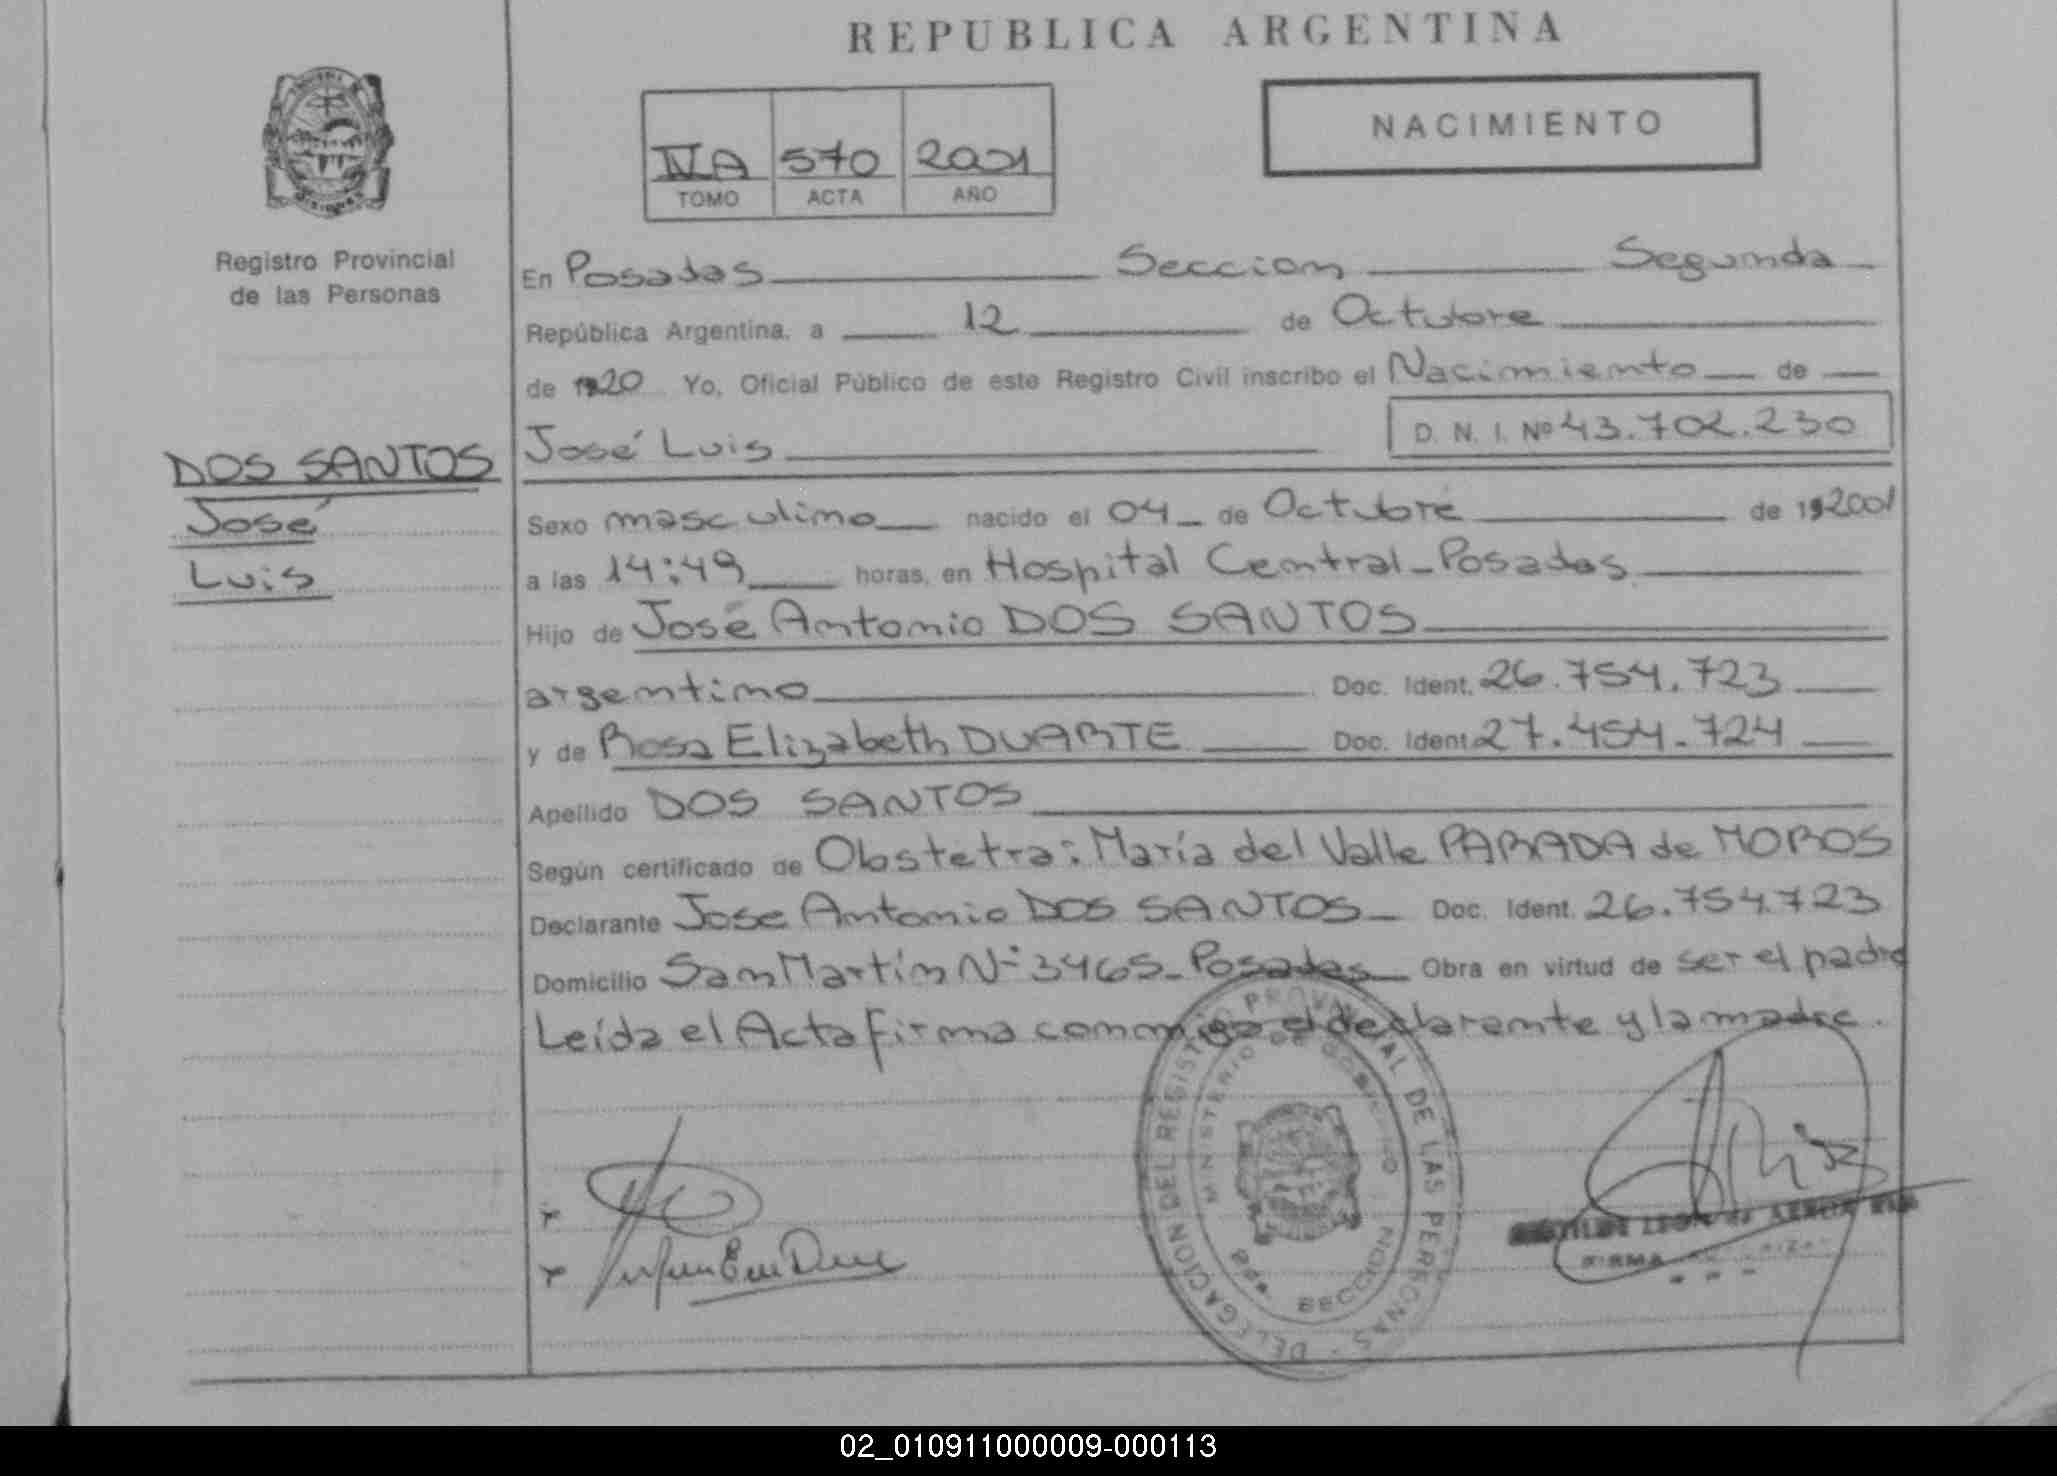 REPUBLICA ARGENTINA
NACIMIENTO
IVA 570 2001
TOMO ACTA AÑO
Registro Provincial
de las Personas
DOS SANTOS
José
Luis
En Posadas Seccion Segunda
República Argentina, a 12 de Octubre
de 1920 Yo, Oficial Público de este Registro Civil inscribo el Nacimiento de
José Luis D. N. I. Nº 43.702.230
Sexo masculino nacido el 04 de Octubre de 192001
a las 14:49 horas, en Hospital Central - Posadas
Hijo de José Antonio DOS SANTOS
argentino Doc. Ident. 26.754.723
y de Rosa Elizabeth DUARTE Doc. Ident 27.454.724
Apellido DOS SANTOS
Según certificado de Obstetra: María del Valle PARADA de MOROS
Declarante Jose Antonio DOS SANTOS Doc. Ident. 26.754.723
Domicilio San Martín Nº 3465 - Posadas Obra en virtud de ser el padre
Leída el Acta firma conmigo el declarante y la madre.
DELEGACION DEL REGISTRO PROVINCIAL DE LAS PERSONAS
MINISTERIO DE GOBIERNO
SECCION
FIRMA
02_010911000009-000113